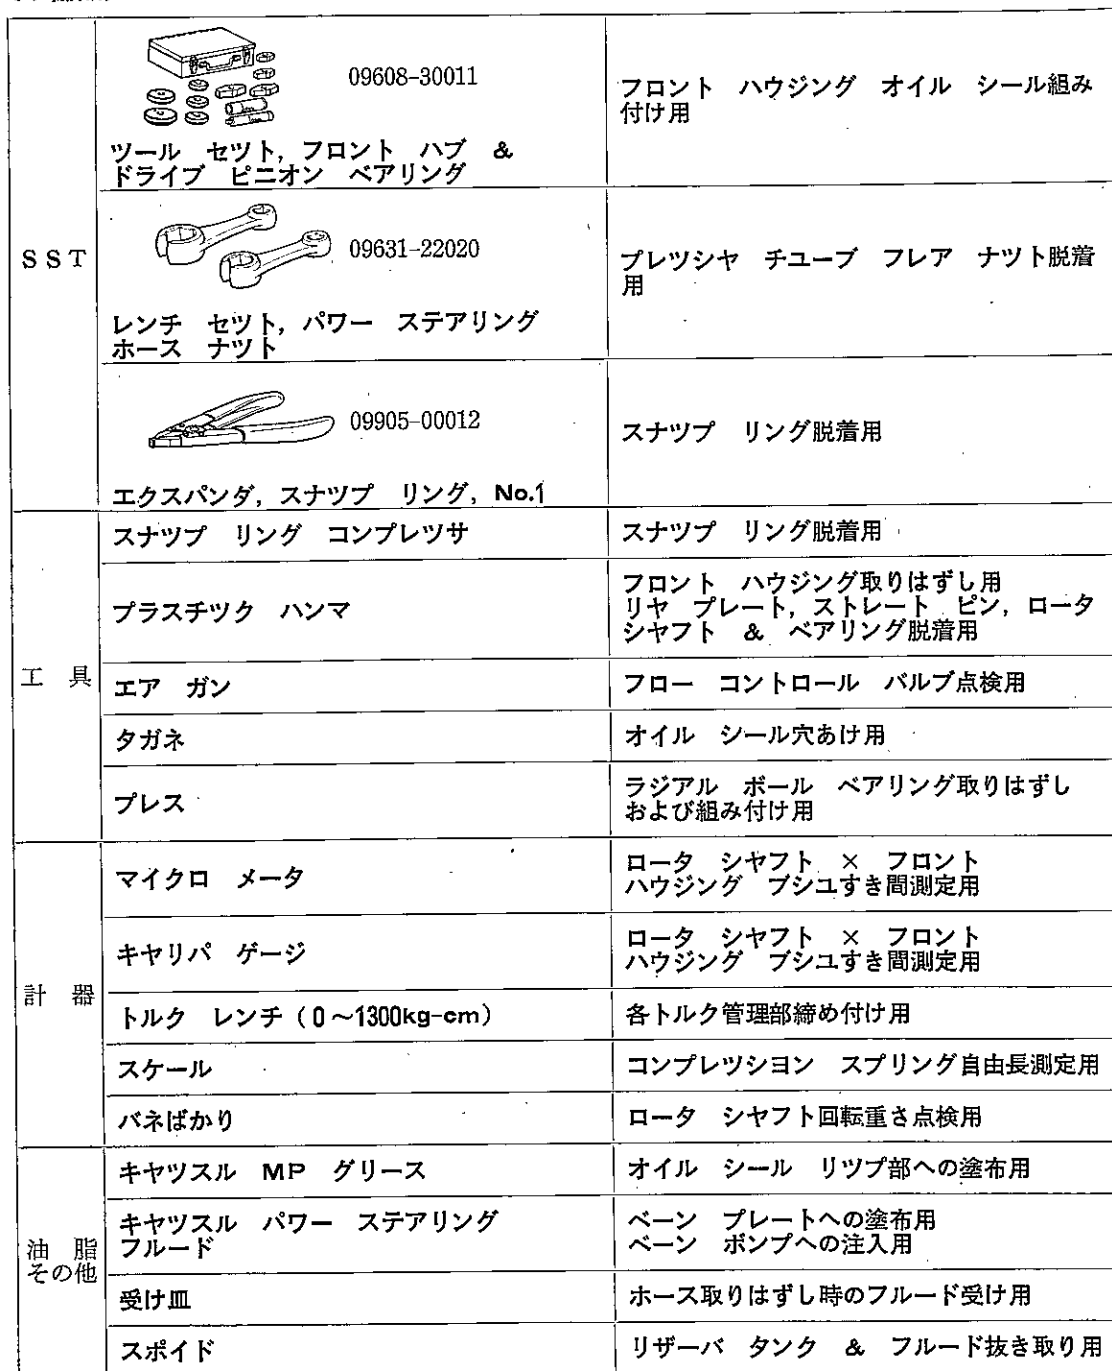 09608-30011
ツール セツト, フロント ハブ &
ドライブ ピニオン ベアリング
フロント ハウジング オイル シール組み
付け用
SST
09631-22020
レンチ セツト, パワー ステアリング
ホース ナツト
プレツシヤ チユーブ フレア ナツト脱着
用
09905-00012
エクスパンダ, スナツプ リング, No.1
スナツプ リング脱着用
工 具
スナツプ リング コンプレツサ
スナツプ リング脱着用
プラスチツク ハンマ
フロント ハウジング取りはずし用
リヤ プレート, ストレート ピン, ロータ
シヤフト & ベアリング脱着用
エア ガン
フロー コントロール バルブ点検用
タガネ
オイル シール穴あけ用
プレス
ラジアル ボール ベアリング取りはずし
および組み付け用
計 器
マイクロ メータ
ロータ シヤフト × フロント
ハウジング ブシユすき間測定用
キヤリパ ゲージ
ロータ シヤフト × フロント
ハウジング ブシユすき間測定用
トルク レンチ (0~1300kg-cm)
各トルク管理部締め付け用
スケール
コンプレツシヨン スプリング自由長測定用
バネばかり
ロータ シヤフト回転重さ点検用
油 脂
その他
キヤツスル MP グリース
オイル シール リツプ部への塗布用
キヤツスル パワー ステアリング
フルード
ベーン プレートへの塗布用
ベーン ポンプへの注入用
受け皿
ホース取りはずし時のフルード受け用
スポイド
リザーバ タンク & フルード抜き取り用